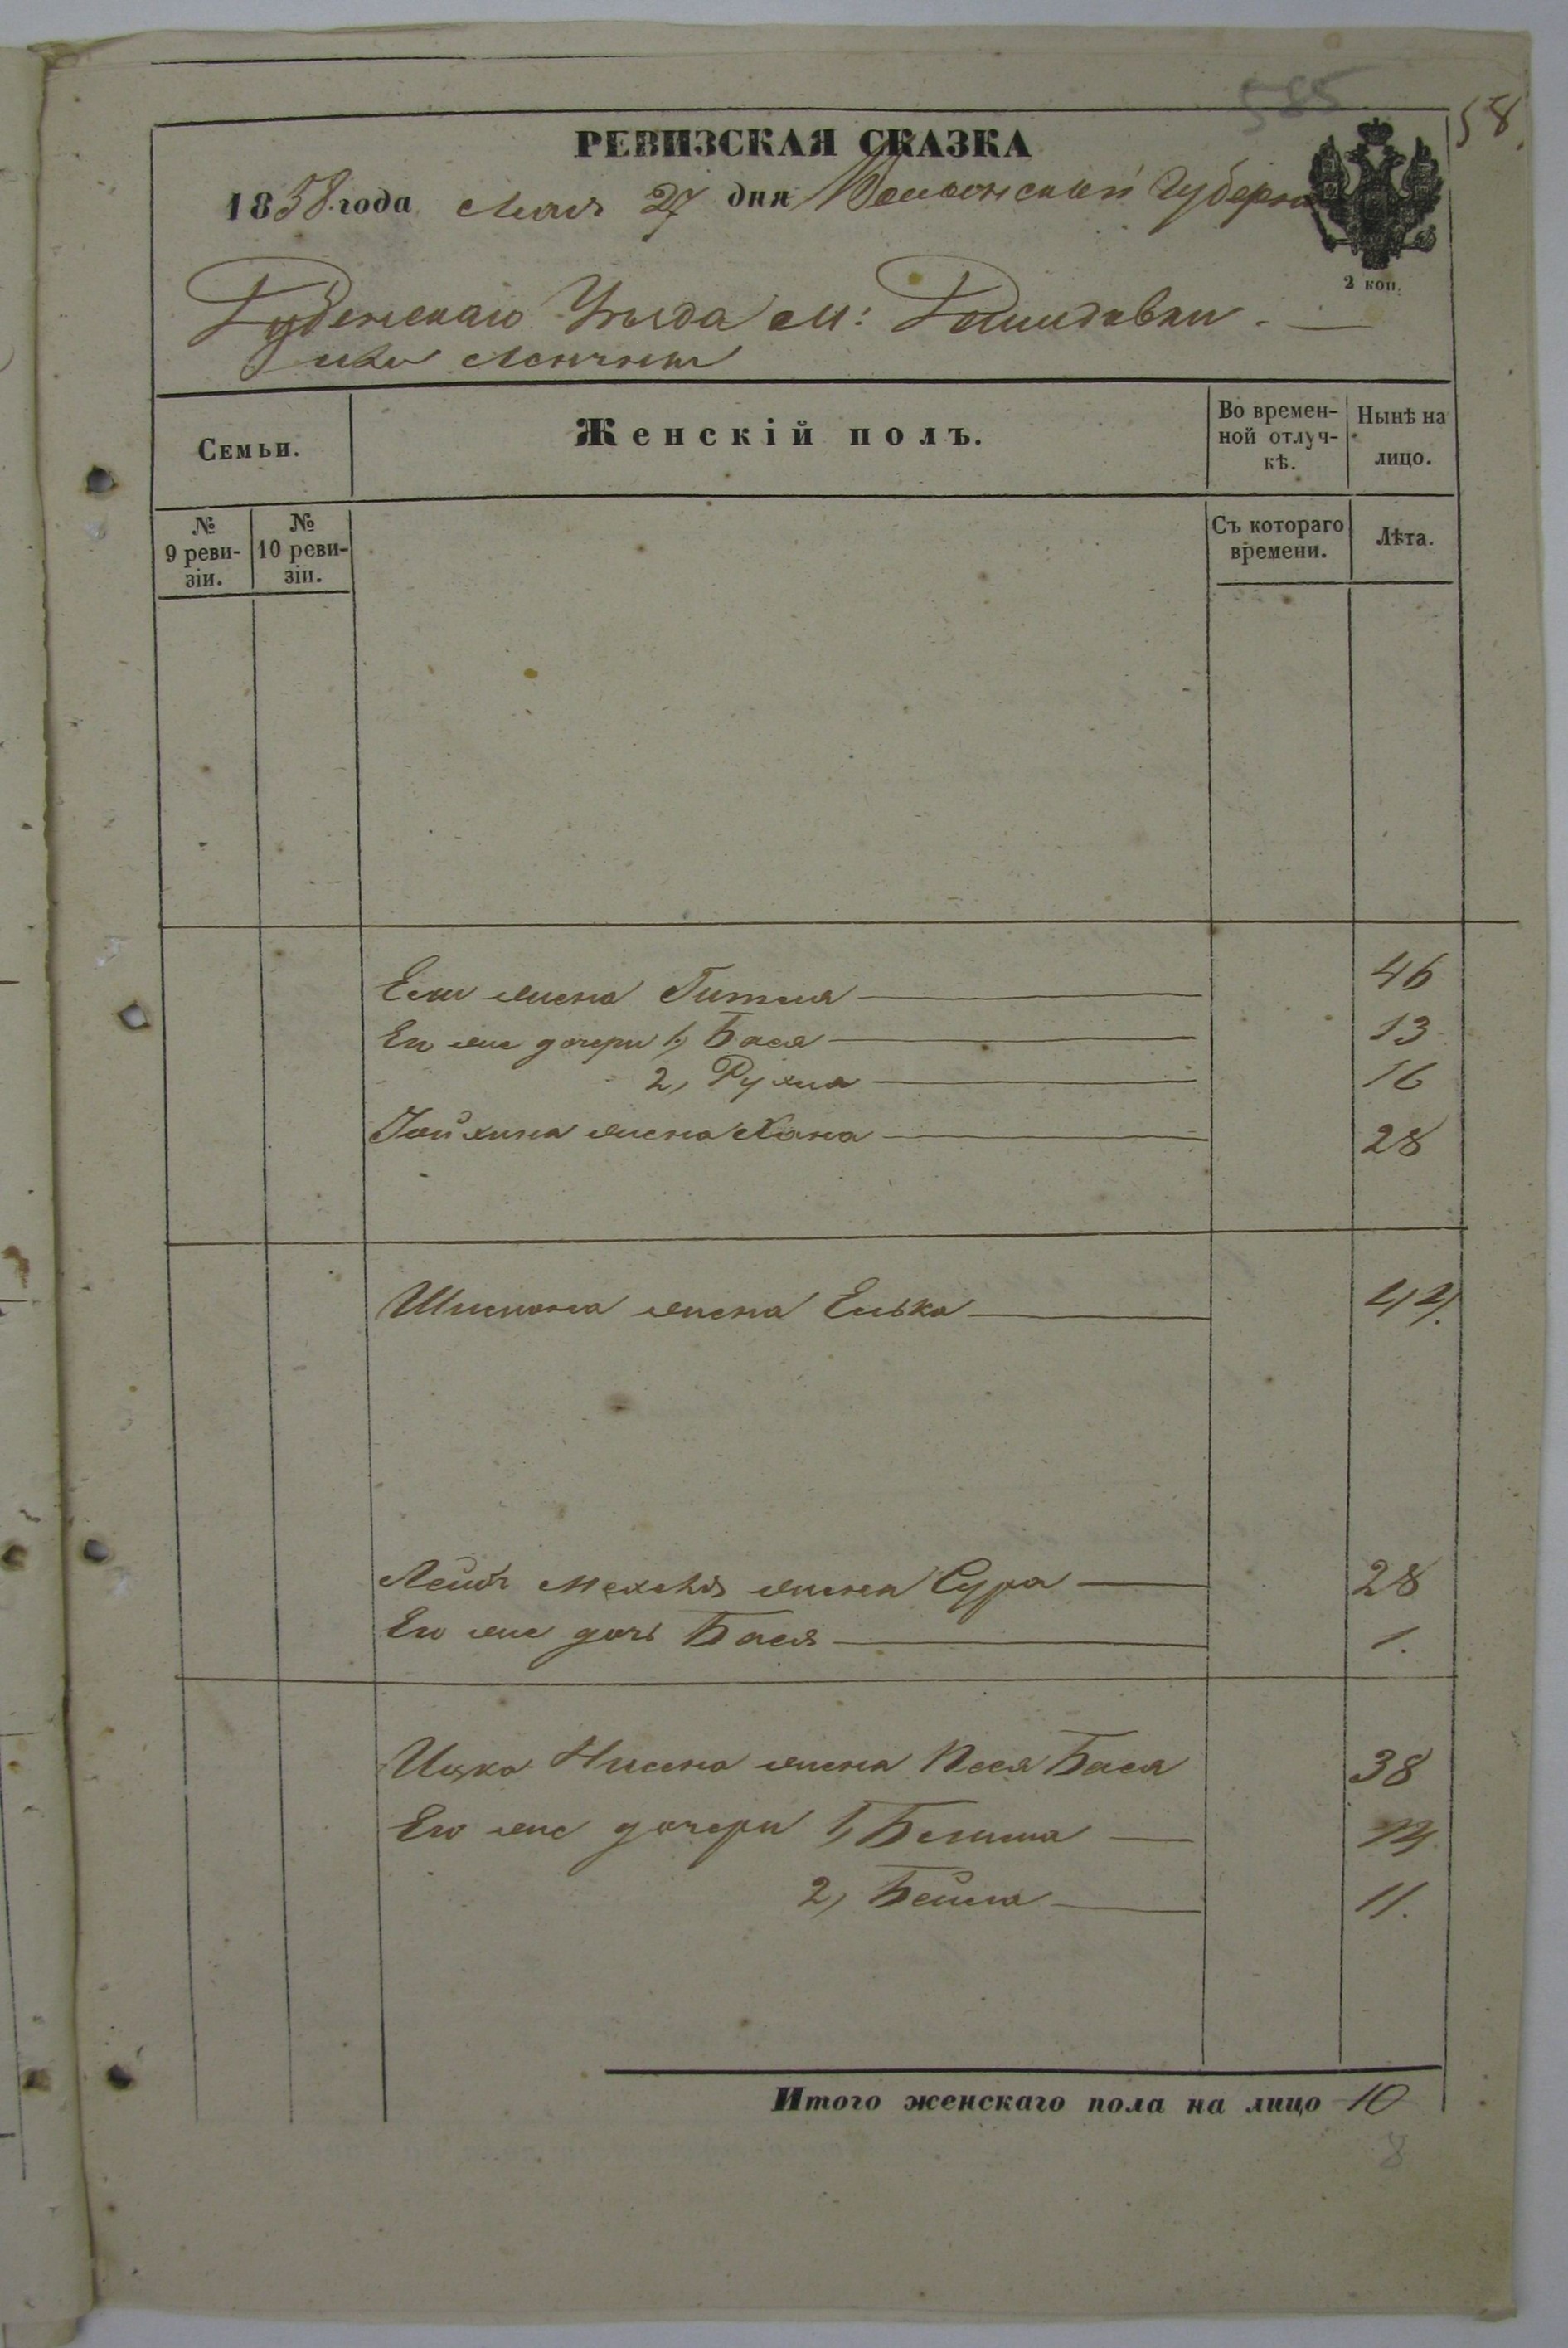 585
58.
РЕВИЗСКАЯ СКАЗКА
1858 года Мая 27 дня Волынской Губерн
2 коп.
Дубенскаго Уѣзда М:
Семьи.
Женскій полъ.
Во времен-
ной отлуч-
кѣ.
Нынѣ на
лицо.
№
9 реви-
зіи.
№
10 реви-
зіи.
Съ котораго
времени.
Лѣта.
жена Гитля 46
Его же дочери 1, Бася 13
2, Рухля 16
жена Хана 28
жена Елька 44.
жена Сура 28
Его же дочь Бася 1.
Ицка Нисена жена Песя Бася 38
Его же дочери 1, 14
2, Бейла 11.
Итого женскаго пола на лицо 10
8